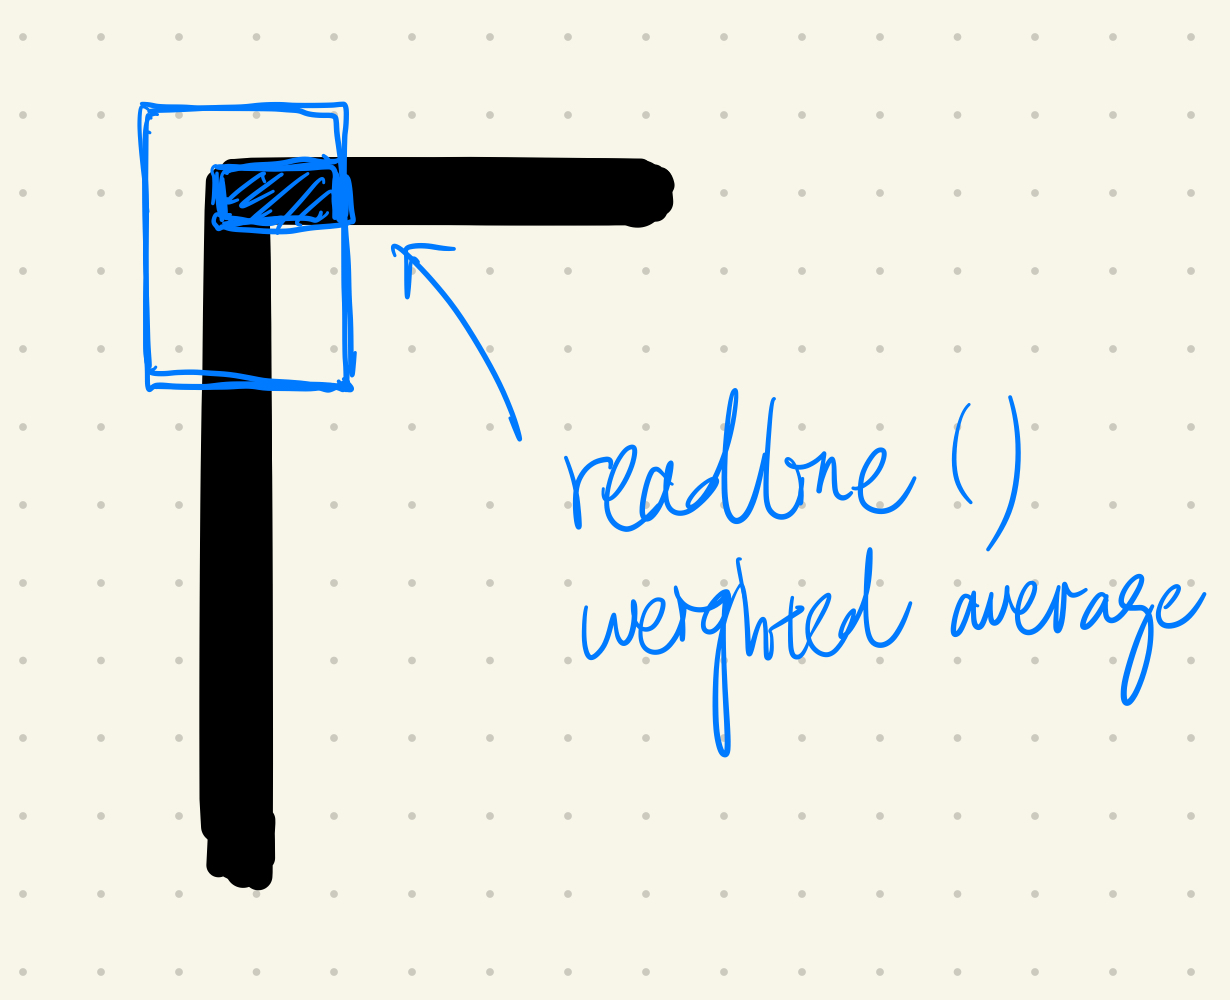 readline ()
weighted average